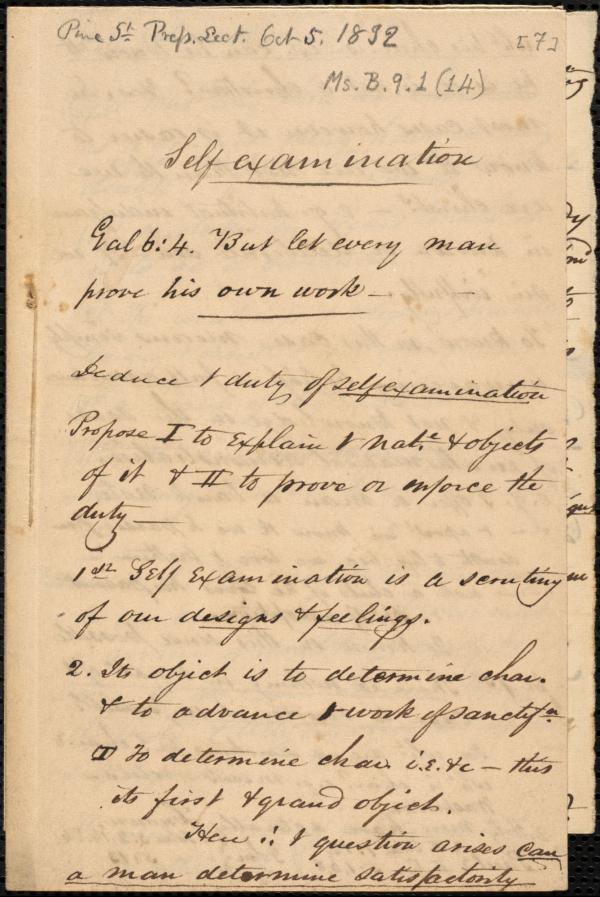 Pine St. Prep. Lect. Oct 5. 1832 [7]
Ms. B. 9. 1 (14)
Self examination
Gal 6: 4. But let every man
prove his own work —
Deduce t duty of self examination
Propose I to explain t nat.e & objects
of it & II to prove or enforce the
duty —
1st Self Examination is a scrutiny
of our designs & feelings.
2. Its object is to determine char.
& to advance t work of sanctifn
To determine char. i.e. &c — this
its first & grand object.
Here t question arises can
a man determine satisfactorily